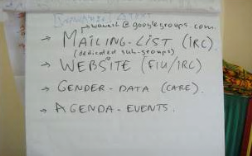 @googlegroups.com.
→ MAILING-LIST (IRC)
(dedicated sub-groups)
→ WEBSITE (FIU/IRC)
→ GENDER-DATA (CARE).
→ AGENDA-EVENTS.